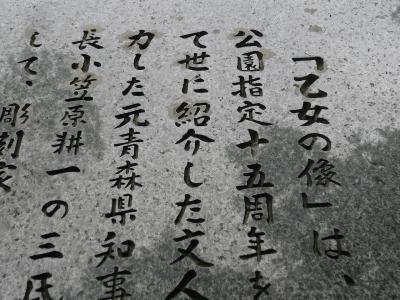 「乙女の像」は、
公園指定十五周年を
て世に紹介した文人
力した元青森県知事
長小笠原耕一の三氏
して、彫刻家